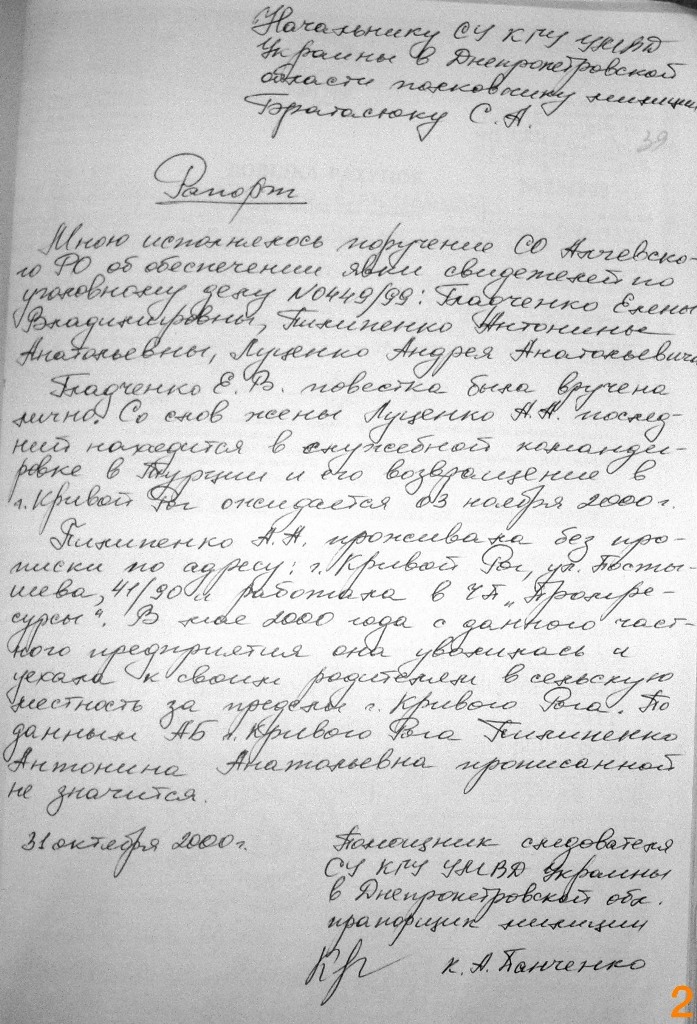 Начальнику СУ КГУ УМВД
Украины в Днепропетровской
области полковнику милиции
Братасюку С.А.
39
Рапорт
Мною исполнялось поручение СО Алчевско-
го РО об обеспечении явки свидетелей по
уголовному делу №0449/99: Гладченко Елены
Владимировны, Пилипенко Антонины
Анатольевны, Луценко Андрея Анатольевича
Гладченко Е.В. повестка была вручена
лично. Со слов жены Луценко А.А. послед-
ний находится в служебной команди-
ровке в Турции и его возвращение в
г. Кривой Рог ожидается 03 ноября 2000г.
Пилипенко А.А. проживала без про-
писки по адресу: г. Кривой Рог, ул. Посты-
шева, 41/90 и работала в ЧП "Промре-
сурсы". В мае 2000 года с данного част-
ного предприятия она уволилась и
уехала к своим родителям в сельскую
местность за пределы г. Кривого Рога. По
данным АБ г. Кривого Рога Пилипенко
Антонина Анатольевна прописанной
не значится.
31 октября 2000г.
Помощник следователя
СУ КГУ УМВД Украины
в Днепропетровской обл.
прапорщик милиции
К.А. Панченко
2